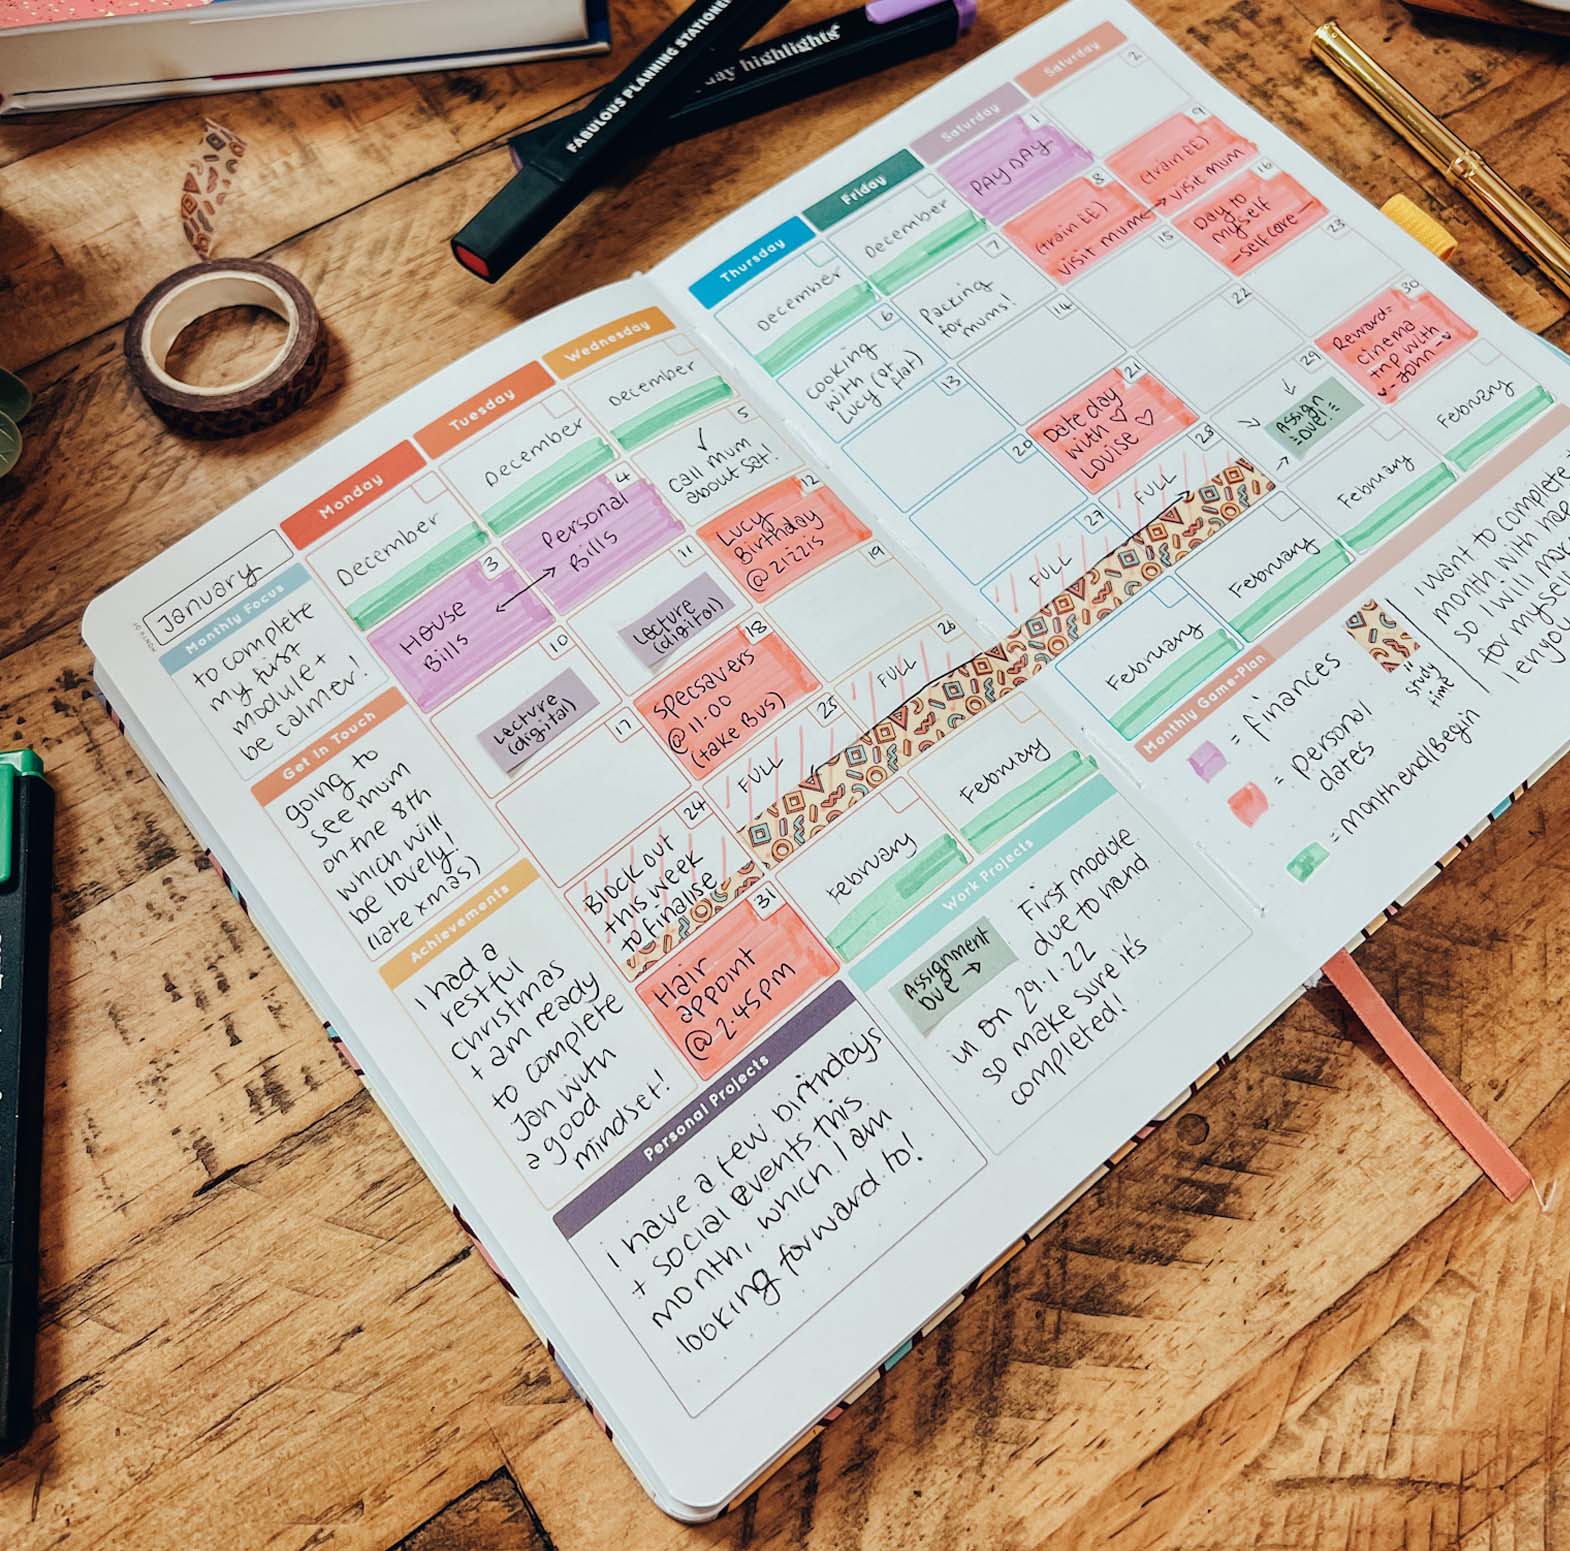 FABULOUS PLANNING STATIONE
day highlights
MONTH OF
January
Monday
Tuesday
Wednesday
Thursday
Friday
Saturday
Saturday
December
December
December
December
December
1
PAY DAY
2
3
House
Bills
4
Personal
Bills
5
Call mum
about sat!
6
Cooking
with
Lucy (at
flat)
7
Packing
for
mums!
8
(train EE)
visit mum
9
(train EE)
visit mum
10
Lecture
(digital)
11
Lecture
(digital)
12
Lucy
Birthday
@ zizzis
13
14
15
16
Day to
myself
-self care-
17
18
Specsavers
@ 11.00
(take Bus)
19
20
21
Date day
with ♡
Louise ♡
22
23
24
Block out
this week
to finalise
25
FULL
26
FULL
27
FULL
28
FULL
29
Assign
=Due!=
30
Reward=
cinema
trip with
- John -
31
Hair
appoint
@ 2.45pm
February
February
February
February
February
February
Monthly Focus
to complete
my first
module +
be calmer!
Get In Touch
going to
see mum
on the 8th
which will
be lovely!
(late xmas)
Achievements
I had a
restful
Christmas
+ am ready
to complete
Jan with
a good
mindset!
Personal Projects
I have a few birthdays
+ social events this
month, which I am
looking forward to!
Work Projects
Assignment
Due →
First module
due to hand
in on 29.1.22
so make sure it's
completed!
Monthly Game-Plan
= finances
= personal
dates
= month end/Begin
"
study
time
I want to complete
month with
so I will
for myself
enjoy